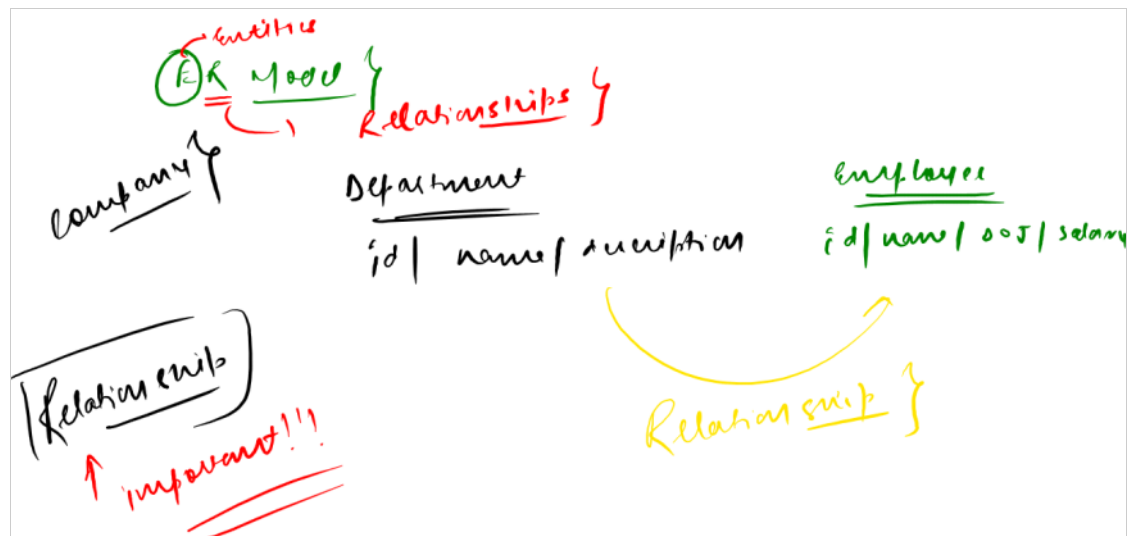 Entities
ER Model }
Relationships }
Company }
Department
id / name / description
Employee
id / name / DOJ / salary
Relationship }
Relationship
important!!!